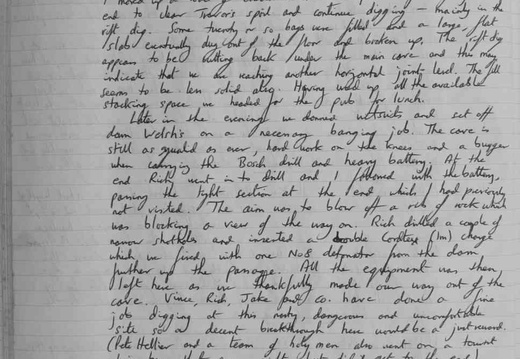 end to clear Trevor's spoil and continue digging – mainly in the
rift dig. Some twenty or so bags were filled and a large flat
slab eventually dug out of the floor and broken up. The rift dig
appears to be cutting back under the main cave and this may
indicate that we are reaching another horizontal joint-level. The fill
seems to be less solid also. Having used up all the available
stacking space we headed for the pub for lunch.
Later in the evening we donned wetsuits and set off
down Welsh's on a necessary banging job. The cave is
still as squalid as ever, hard work on the knees and a bugger
when carrying the Bosch drill and heavy battery. At the
end Rich went in to drill and I followed with the battery,
passing the tight section at the end which I had previously
not visited. The aim was to blow off a rib of rock which
was blocking a view of the way on. Rich drilled a couple of
narrow shotholes and inserted a double Cordtex (1m) charge
which we fired with one No8 detonator from the dam
further up the passage. All the equipment was then
left here as we thankfully made our way out of the
cave. Vince, Rich, Jake and co. have done a fine
job digging at this nasty, dangerous and uncomfortable
site so a decent breakthrough here would be a just reward.
(Pete Hellier and a team of holy men also went on a tourist